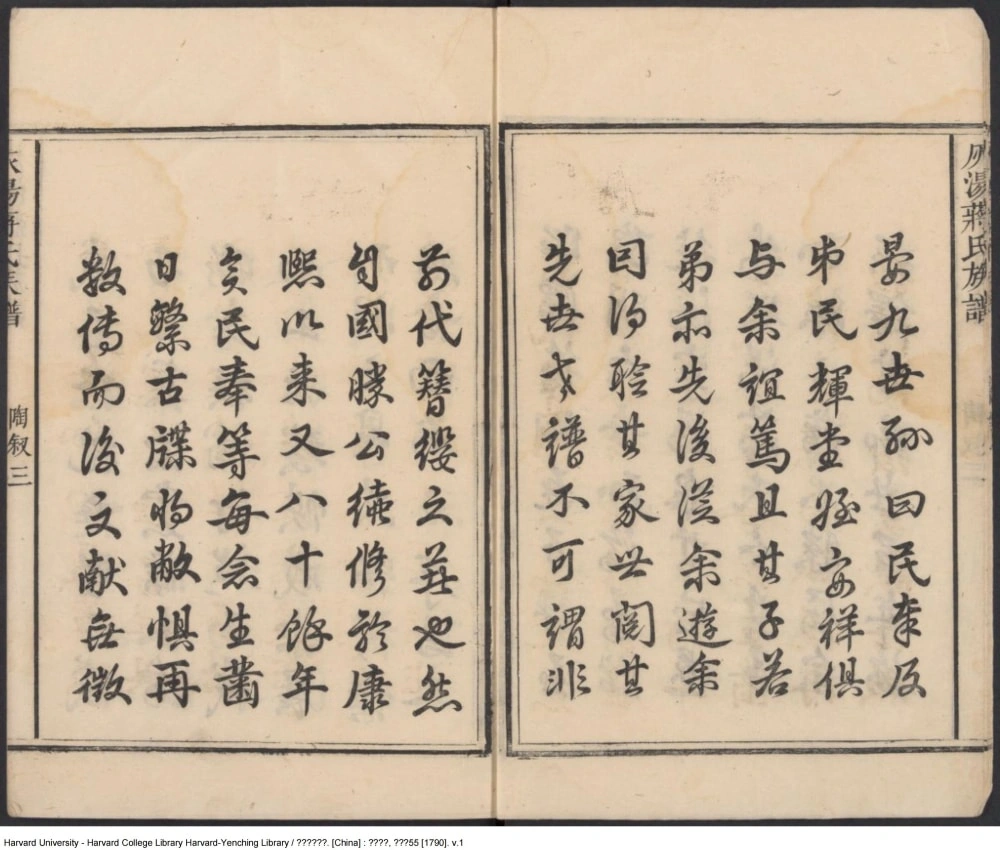 灰湯蔣氏族譜
晏九世孫曰民奉及
弟民輝堂姪安祥俱
与余誼篤且其子若
弟亦先後從余遊余
因得聆其家世閱其
先世支譜不可謂非
前代簪纓之英也然
自國勝公續修於康
熙以来又八十餘年
矣民奉等每念生齒
日繁古牒將敝惧再
数傳而後文献無徵
灰湯蔣氏族譜
陶叙 三
Harvard University - Harvard College Library Harvard-Yenching Library / ??????. [China] : ????, ???55 [1790]. v.1